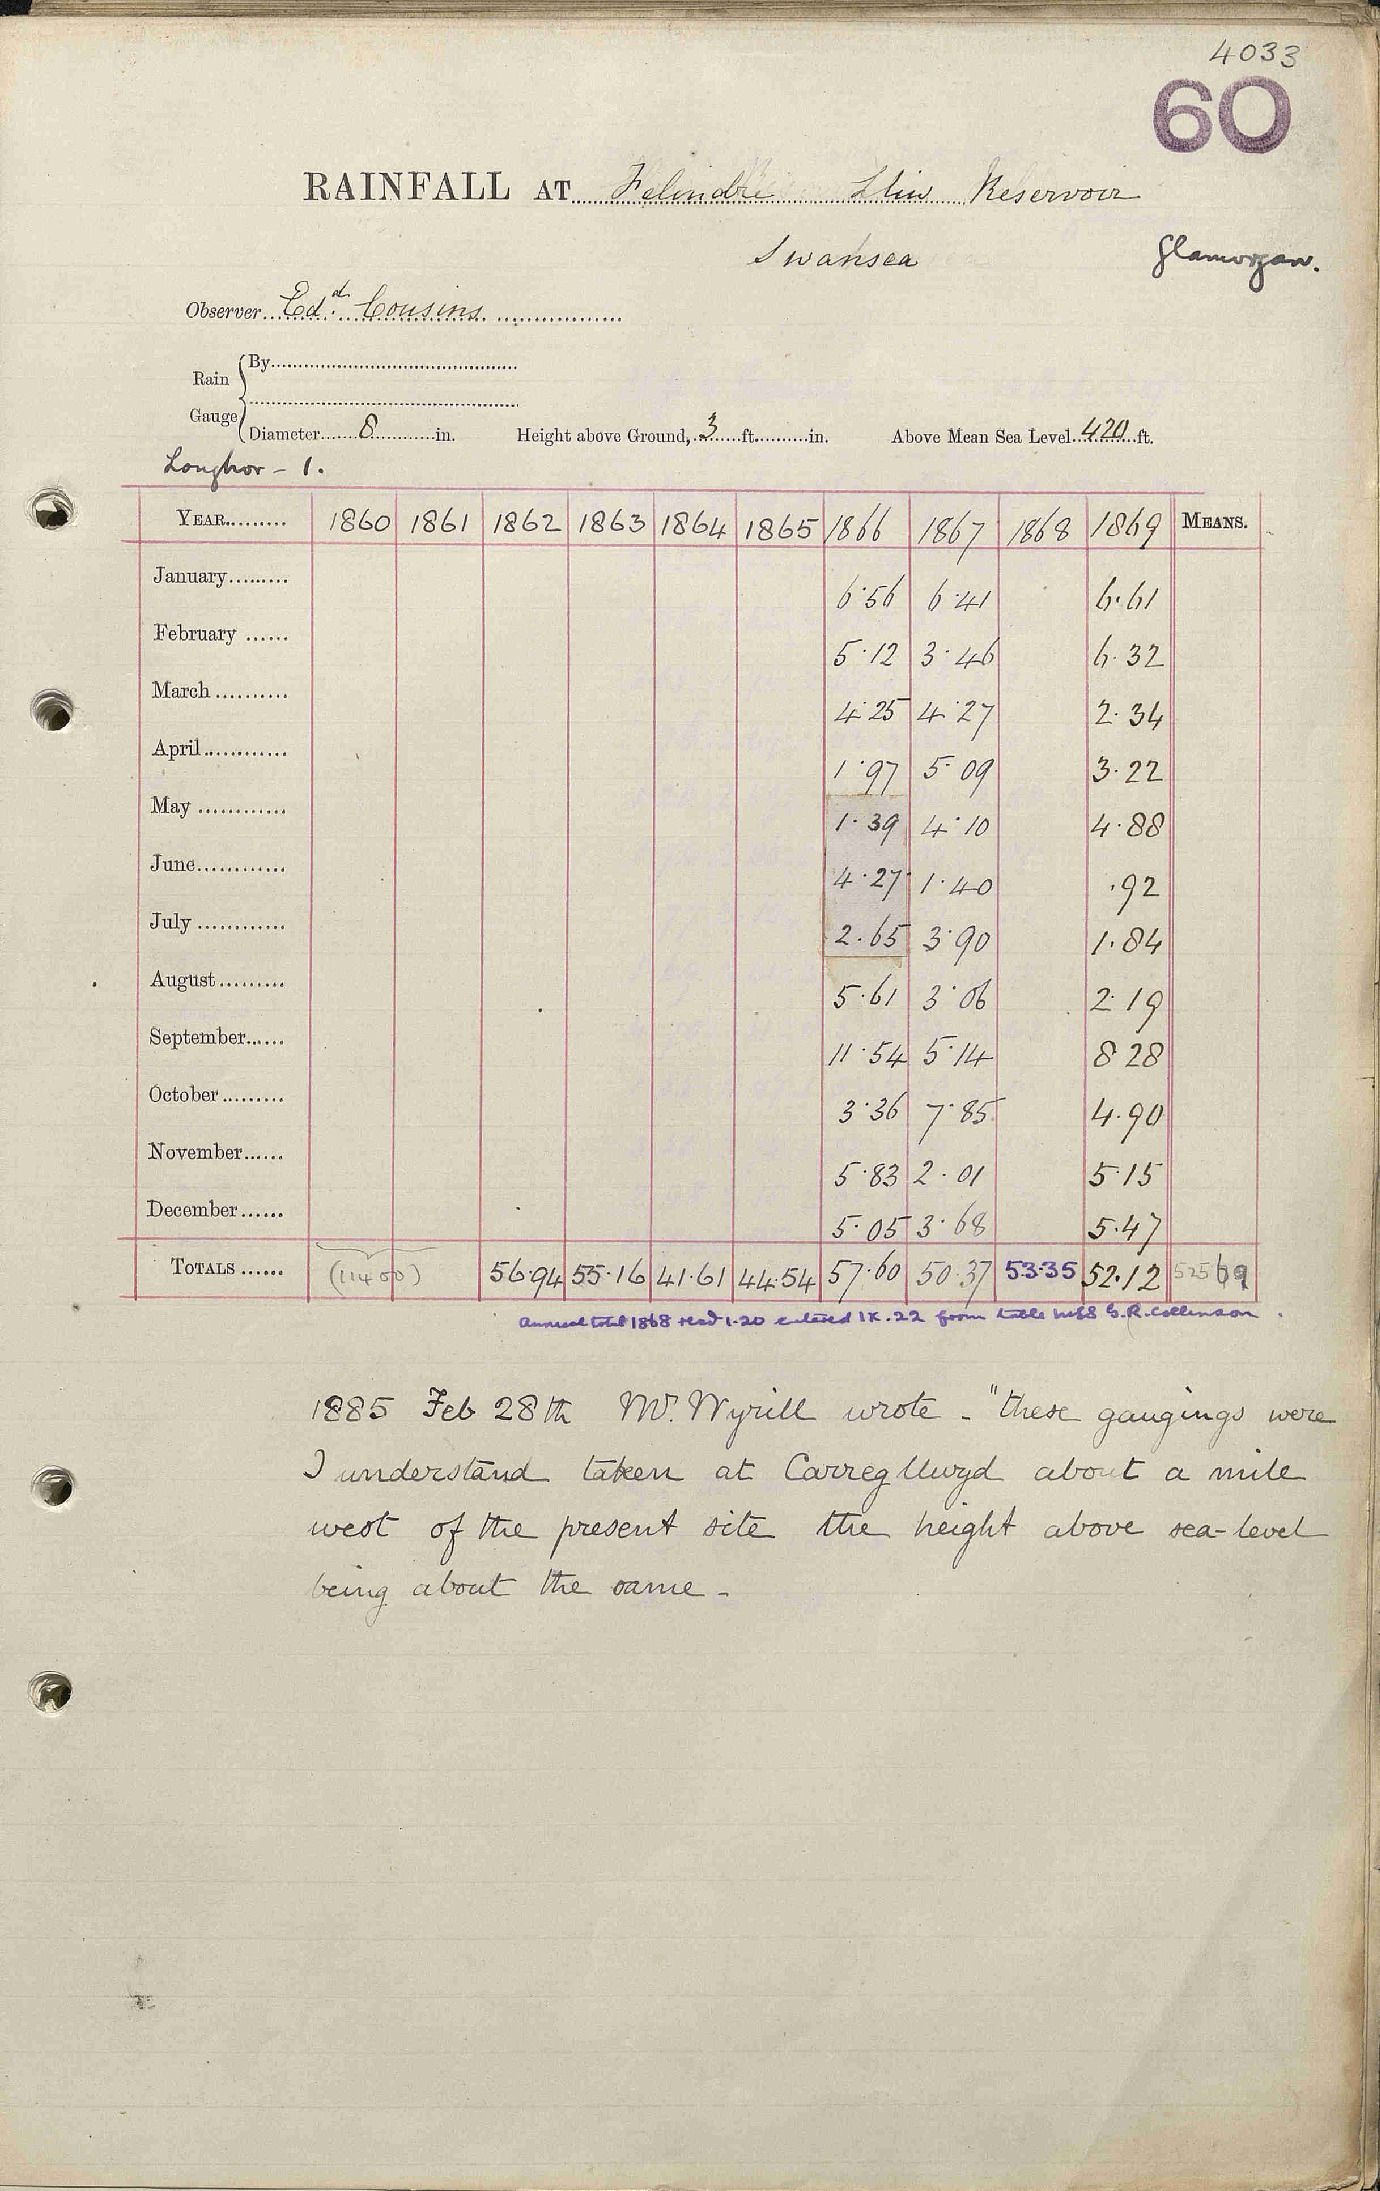 4033
60
RAINFALL AT Felindre Lliw Reservoir
Swansea Glamorgan.
Observer Edd. Cousins
Rain Gauge By
Diameter 8 in. Height above Ground, 3 ft. in. Above Mean Sea Level 420 ft.
Loughor - 1.
YEAR 1860 1861 1862 1863 1864 1865 1866 1867 1868 1869 MEANS.
January 6.56 6.41 6.61
February 5.12 3.46 6.32
March 4.25 4.27 2.34
April 1.97 5.09 3.22
May 1.39 4.10 4.88
June 4.27 1.40 .92
July 2.65 3.90 1.84
August 5.61 3.06 2.19
September 11.54 5.14 8 28
October 3.36 7.85 4.90
November 5.83 2.01 5.15
December 5.05 3.68 5.47
TOTALS (11400) 56.94 55.16 41.61 44.54 57.60 50.37 53.35 52.12
Annual total 1868 recd 1.20 entered IX.22 from table G.R. Collinson.
1885 Feb 28th Mr. Wyrill wrote - "these gaugings were
I understand taken at Carregllwyd about a mile
west of the present site the height above sea-level
being about the same -